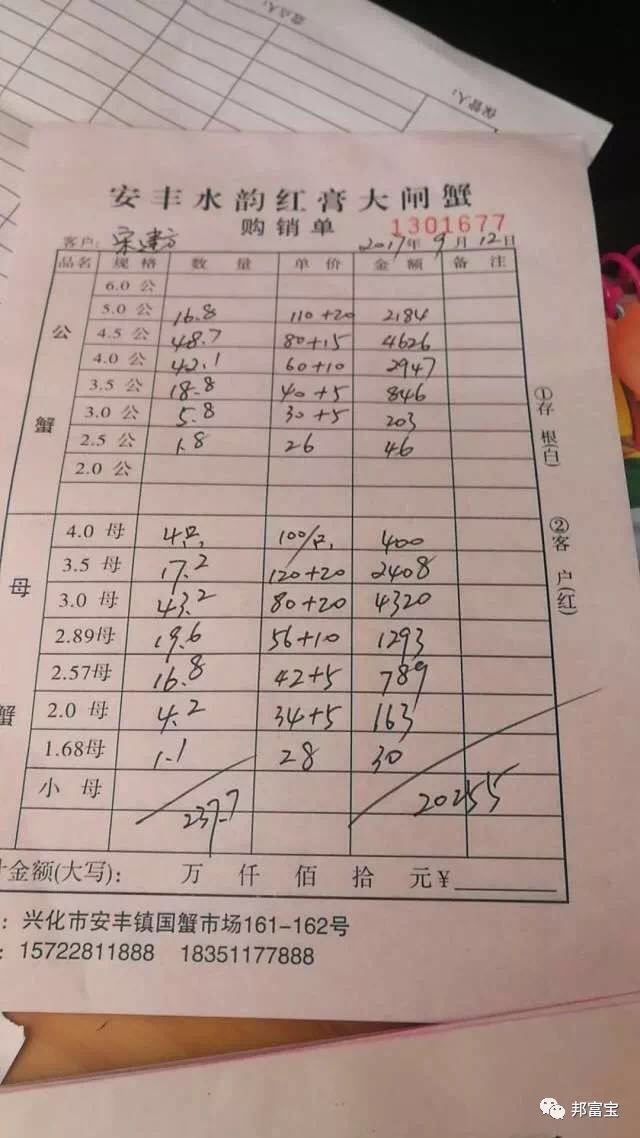 盘点人:
保管人:
安丰水韵红膏大闸蟹
购销单 1301677
客户: 宋建方 2017年9月12日
品名 规格 数量 单价 金额 备注
公蟹
6.0公
5.0公 16.8 110+20 2184
4.5公 48.7 80+15 4626
4.0公 42.1 60+10 2947
3.5公 18.8 40+5 846
3.0公 5.8 30+5 203
2.5公 1.8 26 46
2.0公
母蟹
4.0母 4只 100/只 400
3.5母 17.2 120+20 2408
3.0母 43.2 80+20 4320
2.89母 19.6 56+10 1293
2.57母 16.8 42+5 789
2.0母 4.2 34+5 163
1.68母 1.1 28 30
小母
237.7 20255
计金额(大写): 万 仟 佰 拾 元¥
: 兴化市安丰镇国蟹市场161-162号
: 15722811888 18351177888
①存根(白)
②客户(红)
邦富宝